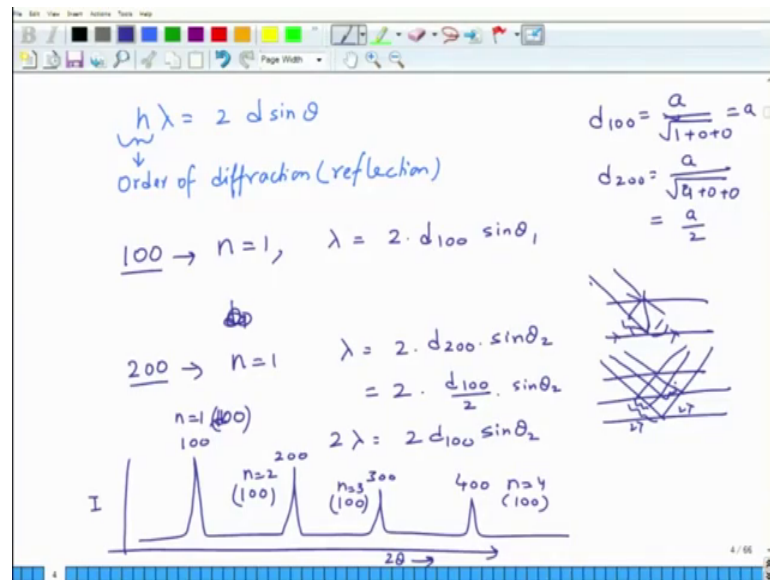 File Edit View Insert Actions Tools Help
B I
Page Width
nλ = 2 d sinθ
Order of diffraction (reflection)
d100 = a/√1+0+0 = a
d200 = a/√4+0+0
= a/2
100 → n=1, λ = 2. d100 sinθ1
200 → n=1 λ = 2. d200. sinθ2
= 2. d100/2. sinθ2
2λ = 2 d100 sinθ2
n=1 (100)
100
200
n=2
(100)
300
n=3
(100)
400 n=4
(100)
I
2θ →
2T 2T
4 / 66
4